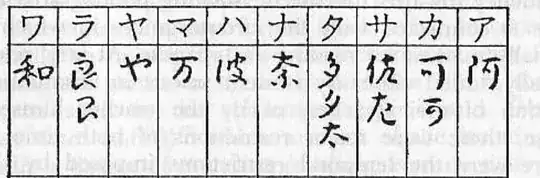 ア阿
カ可可
サ佐
タ多太
ナ奈
ハ波
マ万
ヤや
ラ良
ワ和